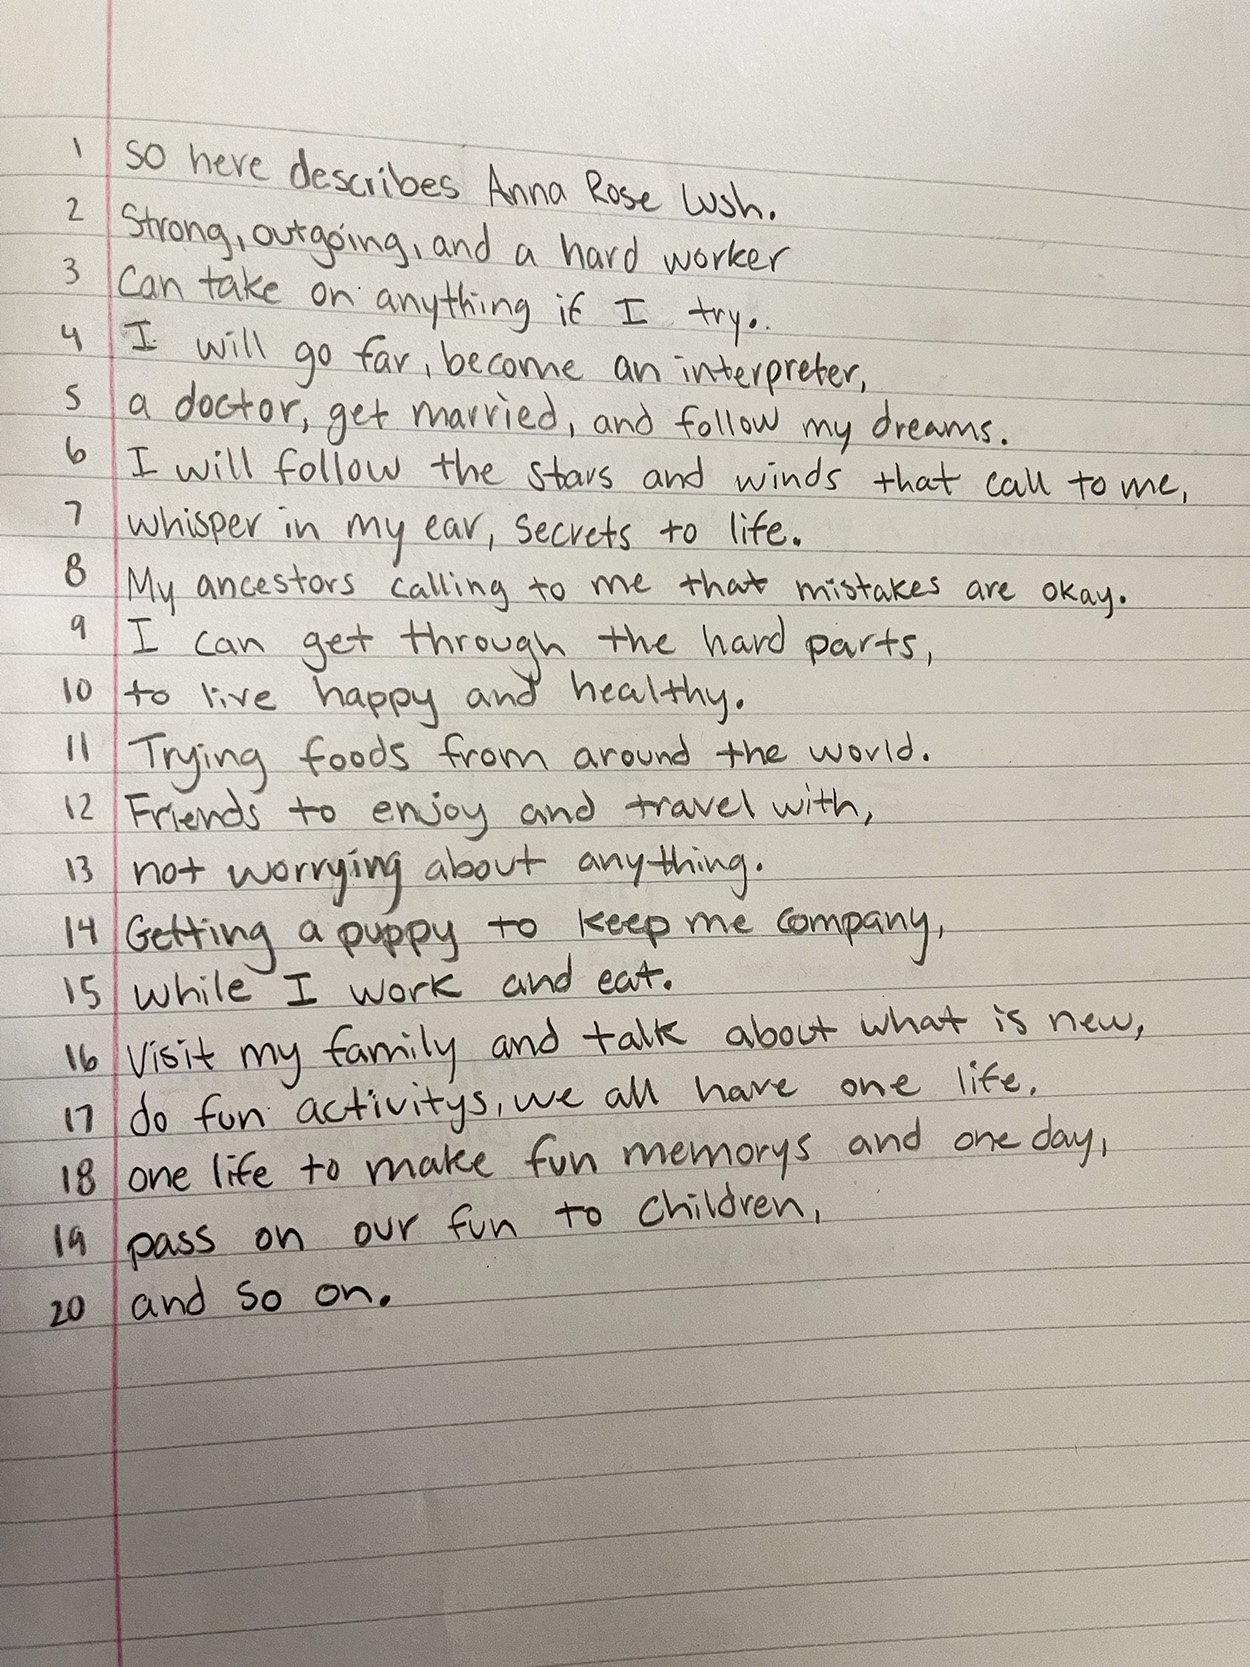 1 so here describes Anna Rose Lush.
2 Strong, outgoing, and a hard worker
3 Can take on anything if I try.
4 I will go far, become an interpreter,
5 a doctor, get married, and follow my dreams.
6 I will follow the stars and winds that call to me,
7 whisper in my ear, secrets to life.
8 My ancestors calling to me that mistakes are okay.
9 I can get through the hard parts,
10 to live happy and healthy.
11 Trying foods from around the world.
12 Friends to enjoy and travel with,
13 not worrying about anything.
14 Getting a puppy to keep me company,
15 while I work and eat.
16 Visit my family and talk about what is new,
17 do fun activitys, we all have one life.
18 one life to make fun memorys and one day,
19 pass on our fun to children,
20 and so on.